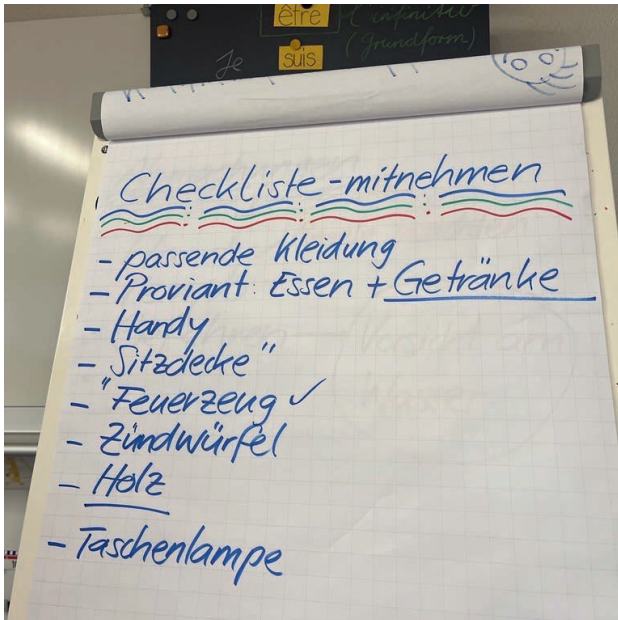 être
l'infinitif
(Grundform)
Je
suis
Checkliste - mitnehmen
- passende Kleidung
- Proviant: Essen + Getränke
- Handy
- Sitzdecke"
- "Feuerzeug ✓
- Zündwürfel
- Holz
- Taschenlampe
Vorsicht am
Wasser